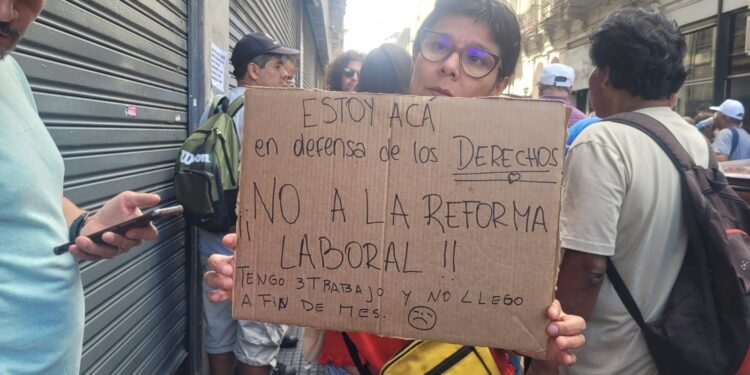 ESTOY ACÁ
en defensa de los DERECHOS
¡¡NO A LA REFORMA
LABORAL !!
TENGO 3 TRABAJO Y NO LLEGO
A FIN DE MES.
Wilson